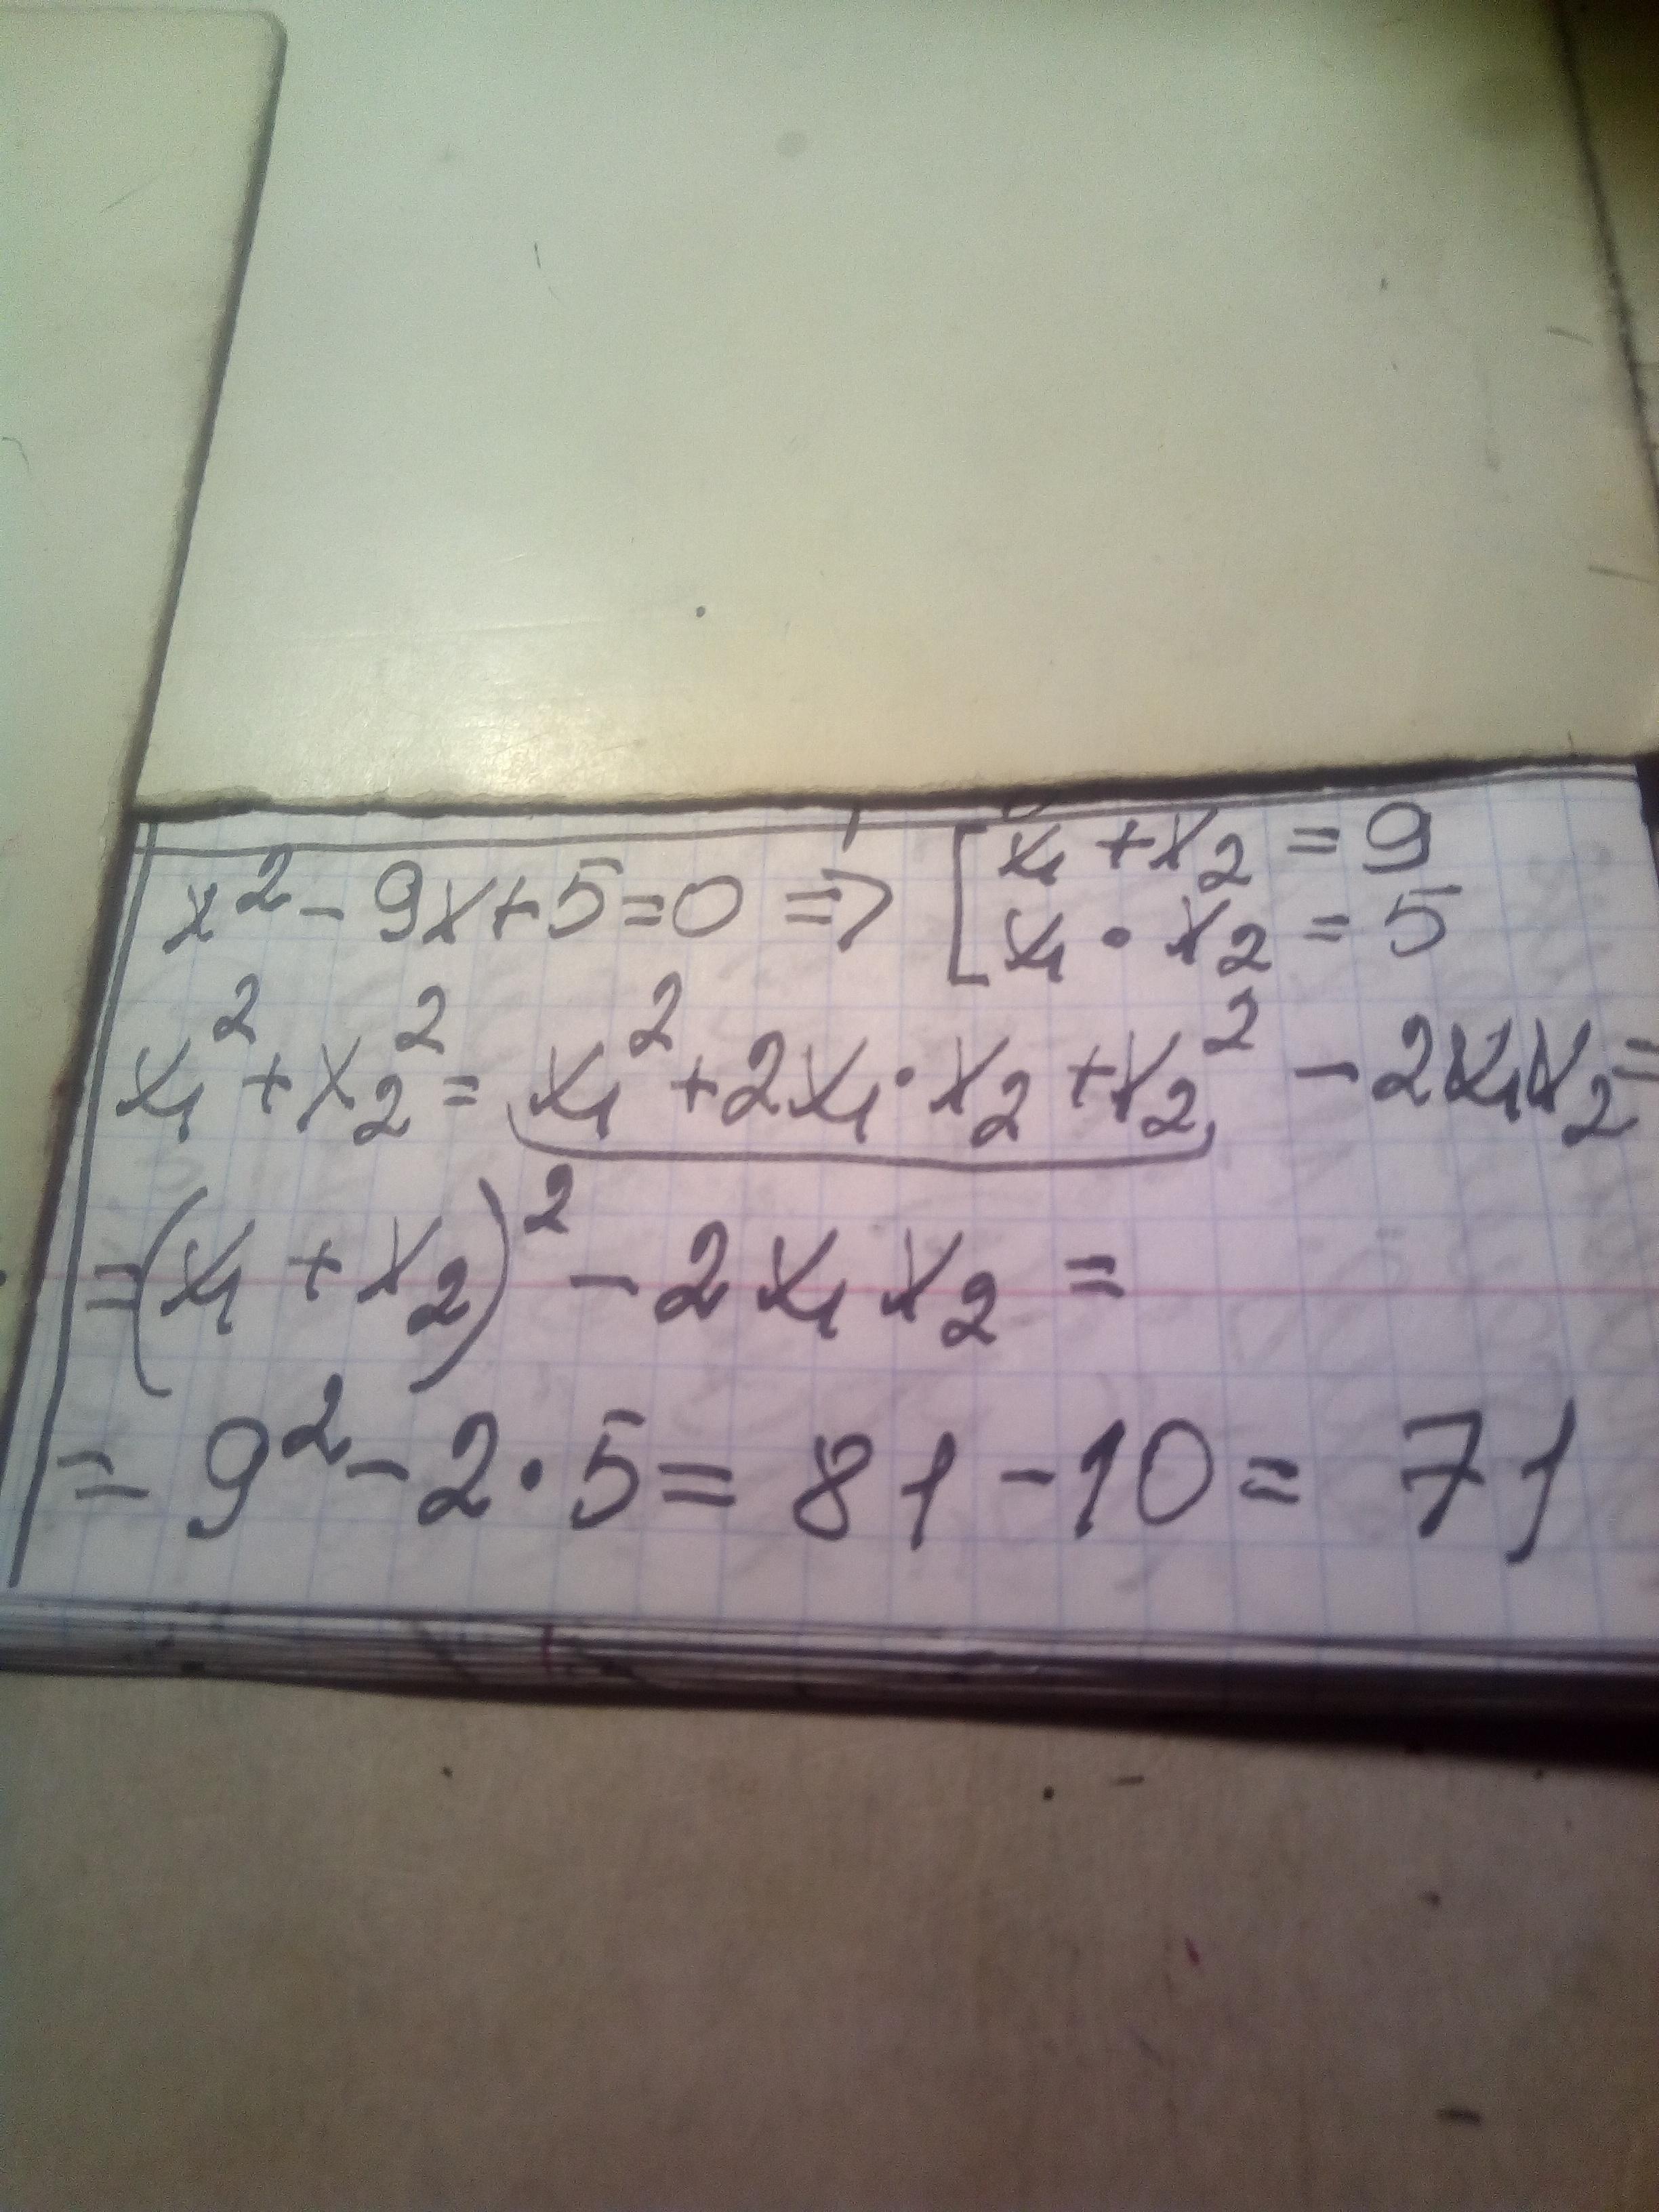 x² - 9x + 5 = 0 => [ x₁ + x₂ = 9
x₁ • x₂ = 5
x₁² + x₂² = x₁² + 2x₁ • x₂ + x₂² - 2x₁x₂ =
= (x₁ + x₂)² - 2x₁x₂ =
= 9² - 2 • 5 = 81 - 10 = 71